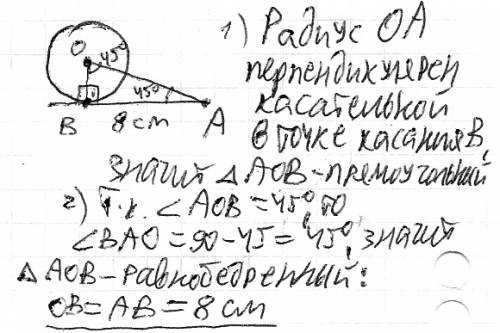 1) Радиус OA
перпендикулярен
касательной
в точке касания B,
значит △ AOB - прямоугольный
2) Т.к. ∠AOB = 45°, то
∠BAO = 90 - 45 = 45°, значит
△ AOB - равнобедренный:
OB = AB = 8 см
O
45°
45°
B
8 см
A